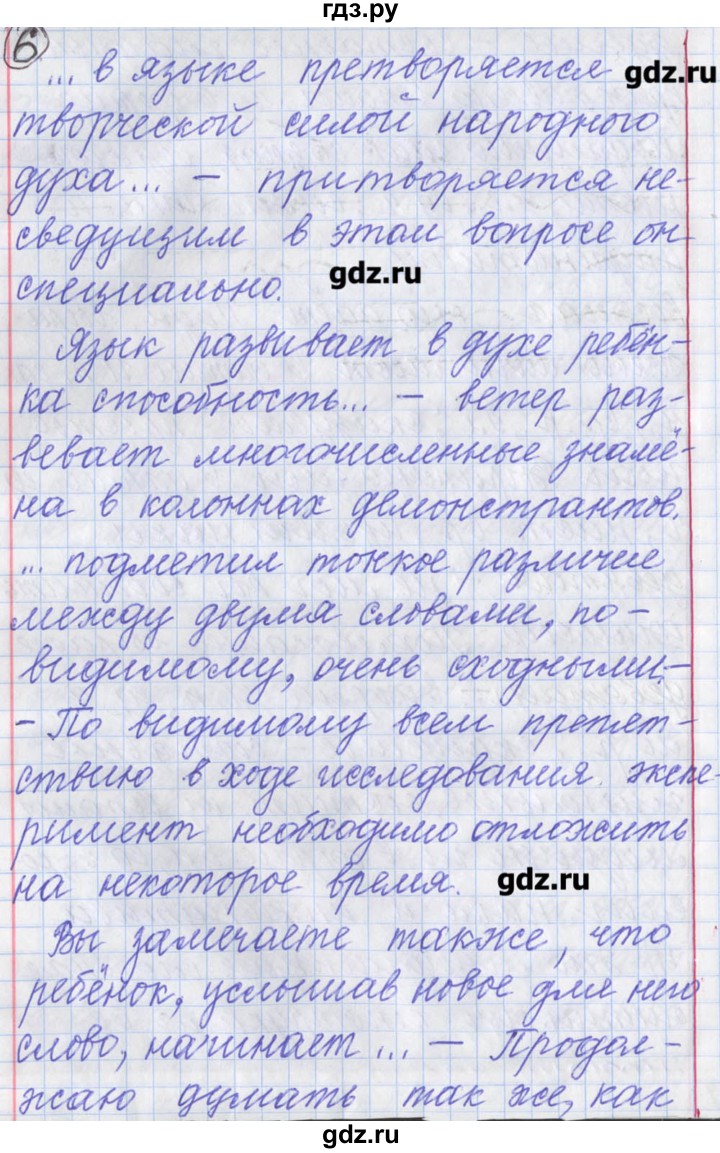 гдз.ру
6
... в языке претворяется gdz.ru
творческой силой народного
духа... – притворяется не-
сведущим в этом вопросе он
специально. gdz.ru
Язык развивает в духе ребён-
ка способность... – ветер раз-
вевает многочисленные знамё-
на в колоннах демонстрантов.
... подметил тонкое различие
между двумя словами, по-
видимому, очень сходными. –
– По видимому всем препят-
ствию в ходе исследования экспе-
римент необходимо отложить
на некоторое время. gdz.ru
Вы замечаете также, что
ребёнок, услышав новое для него
слово, начинает... – Продол-
жаю думать так же, как
gdz.ru